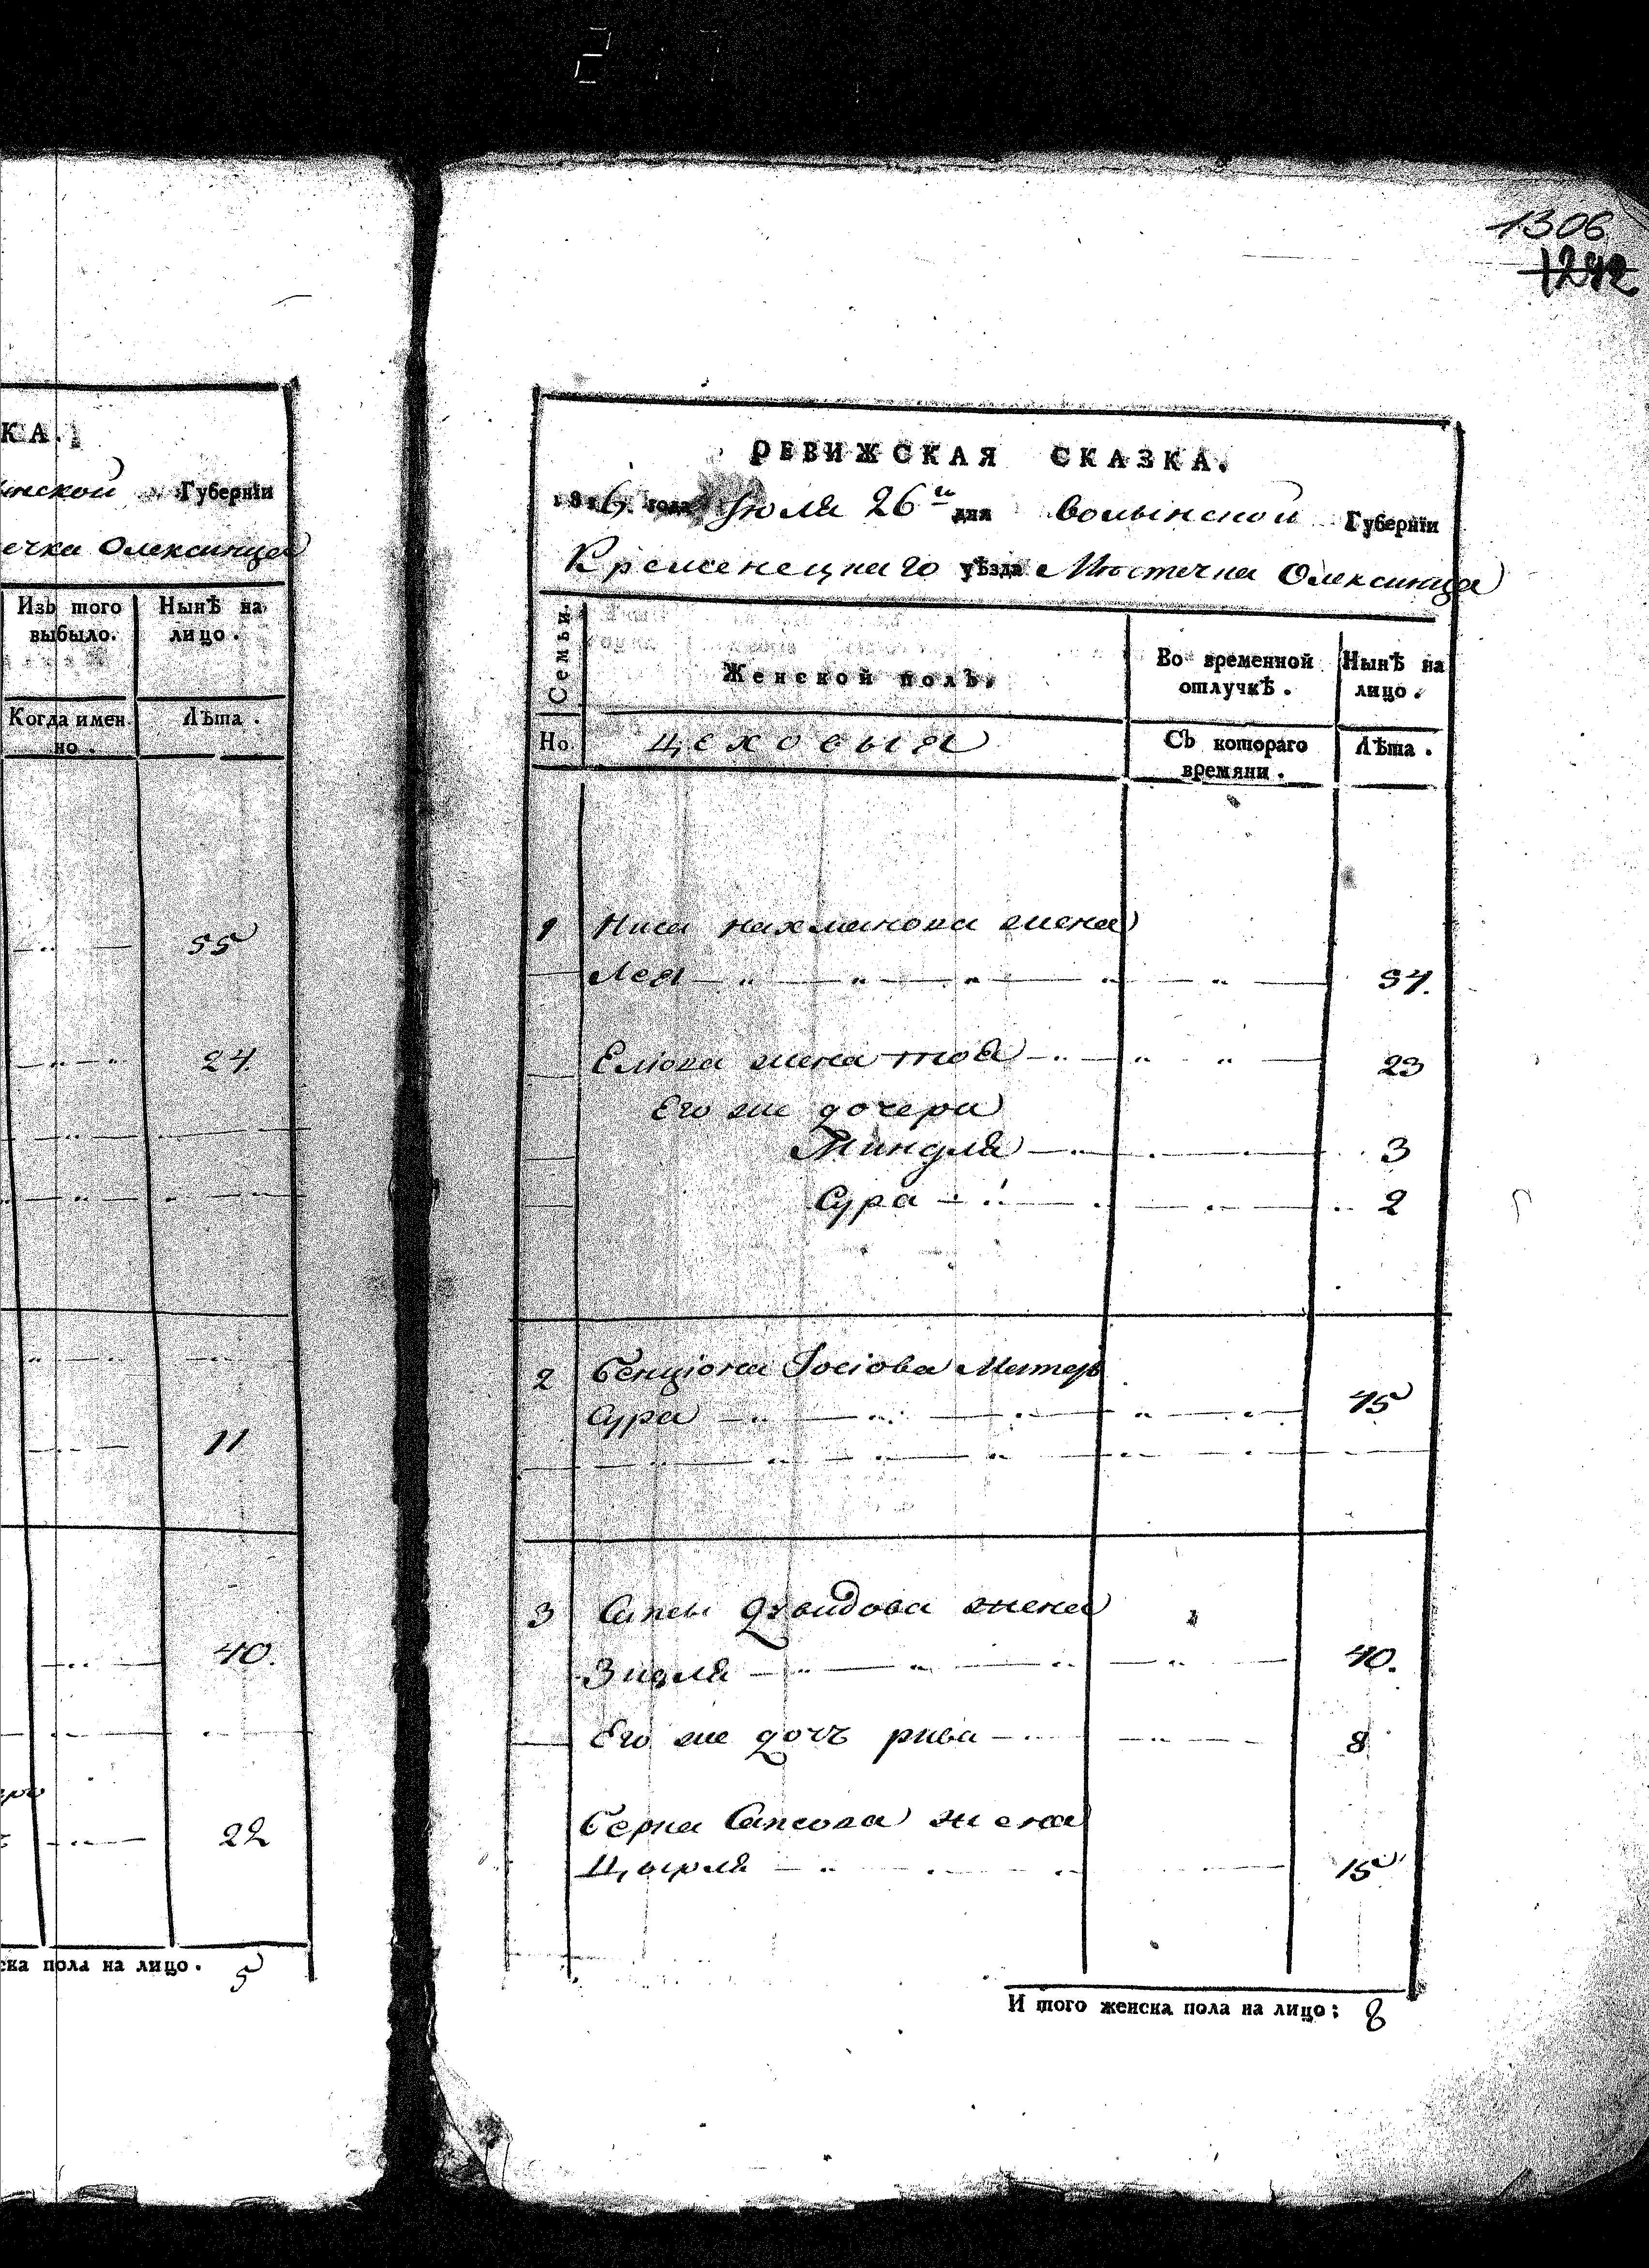 1306
1242
КА.
Губернїи
ечка Олексинца
Изъ того выбыло.
Нынѣ на лицо.
Когда имен но.
Лѣта.
55
24
11
40.
22
ска пола на лицо. 5
РЕВИЖСКАЯ СКАЗКА.
1816. года Іюля 26го дня Волынской Губернїи
Кременецкаго уѣзда Мѣстечка Олексинца
Семьи.
Женской полъ.
Во временной отлучкѣ.
Нынѣ на лицо.
Но.
цеховыя
Съ котораго времяни.
Лѣта.
1 нахманова жена
Лея
Елюва жена тоба 23
Его же дочери
Миндля 3
Сура 2
2 Бенциона Іосіова Матерь
Сура 45
3 Сапсы Давидова жена
Зиселя 40.
Его же дочъ рива 8
Берка Сапсова жена
15
И того женска пола на лицо: 8